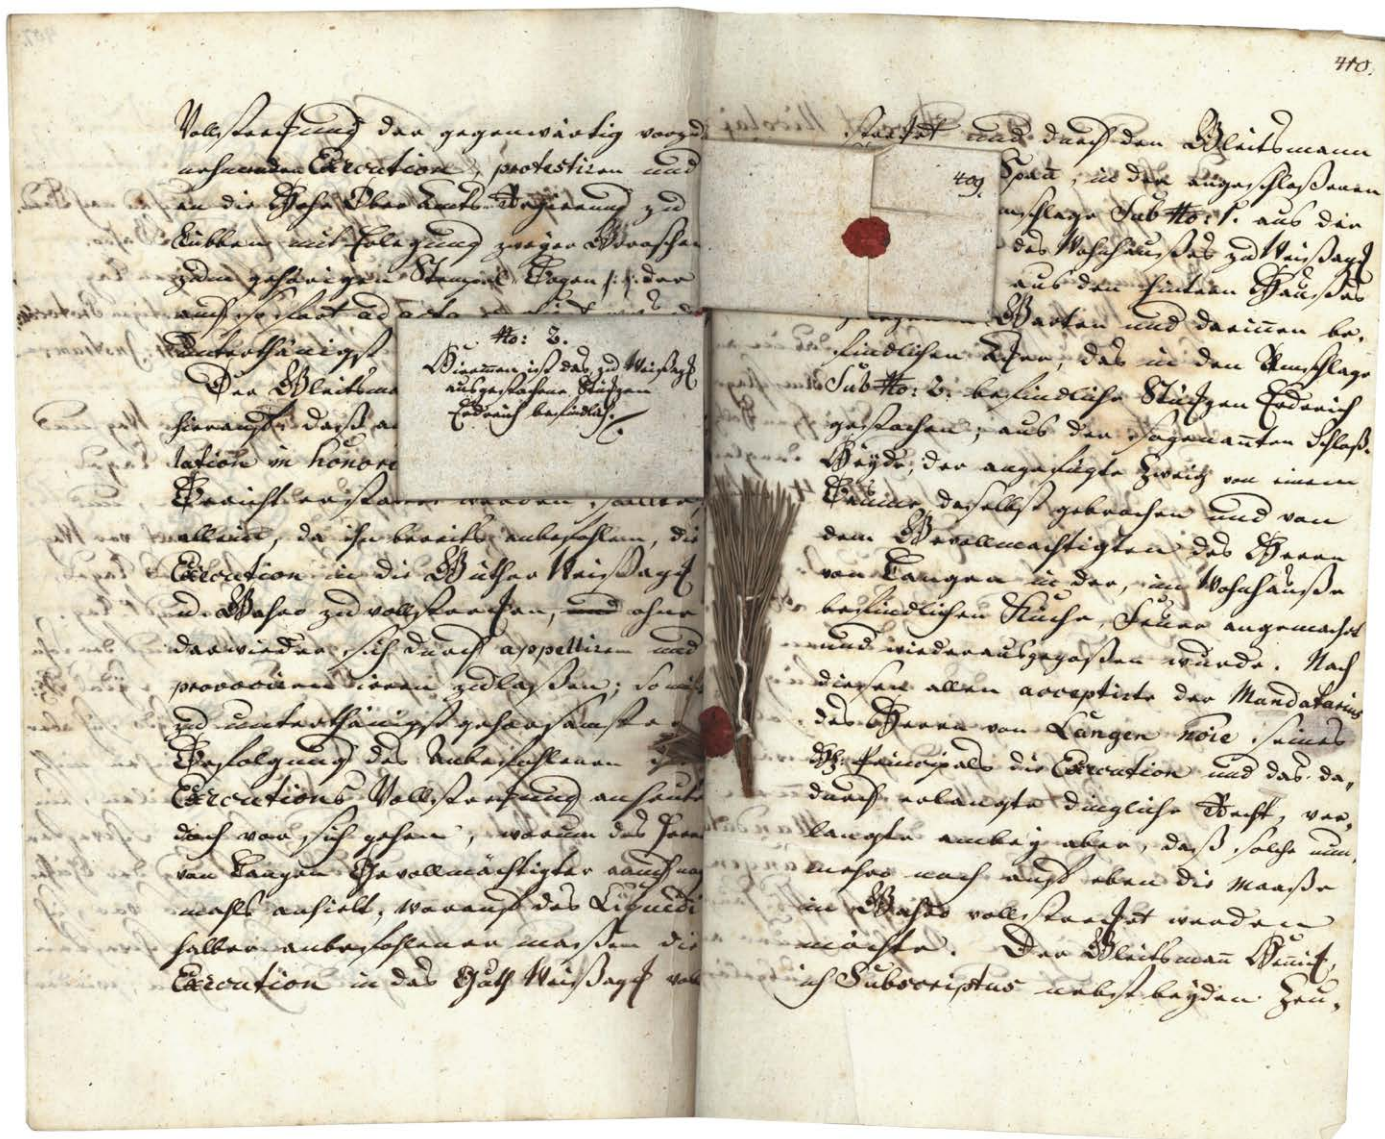 Vollstreckung der gegenwärtig vorzu
nehmenden Execution, protestiren und
an die Hohe Ober Amts Regierung zu
Lübben mit Erlegung zweyer Groschen
zum gehörigen Stempel Bogen
auch so fort ad acta
unterthänigst
Der Gleitsma
hierauf, daß
tation in honore
Bericht erstattet werden
alleine, da ihn bereits anbefohlen, die
Execution in die Güther Weißagk
u. Gahro zu vollstrecken, und ohne
darwieder sich durch appelliren und
provociren irren zu laßen; so müße
zu unterthänigst gehorsamster
Befolgung des Anbefohlenen
Executions Vollstreckung anheute
doch vor sich gehen, warum des Herrn
von Langen Gevollmächtigter auch noch
mahls anhielt, worauf des Liquidi
halber anbefohlener maßen die
Execution in das Guth Weißagk voll
No: 2.
Hierinnen ist das, zu Weißagk
ausgestochene Stückgen
Erdreich befindlich.
410.
409.
strecket und durch den Gleitsmann
Span, in den angeschloßenen
mschlage Sub No: 1. aus der
des Wohnhaußes zu Weißagk
aus den hintern Haußes
Garten und darinnen be-
findlichen, das in den Umschlage
Sub No: 2. befindliche Stückgen Erdreich
gestochen, aus der sogenannten Schloß-
Heyde, der angefügte Zweig von einem
Baume daselbst gebrochen und von
dem Gevollmächtigten des Herrn
von Langen in der, im Wohnhauße
befindlichen Küche, Feuer angemacht
und wieder ausgegoßen wurde. Nach
diesen allen acceptirte der Mandatarius
des Herrn von Langen noie seines
H. Principals die Execution und das da-
durch erlangte dingliche Recht, ver-
langte anbey aber, daß solche nun-
mehro nach auf eben die Maaße
in Gahro vollstrecket werden
möchte. Der Gleitsmañ
ich Subscriptus nebst beyden Zeu-